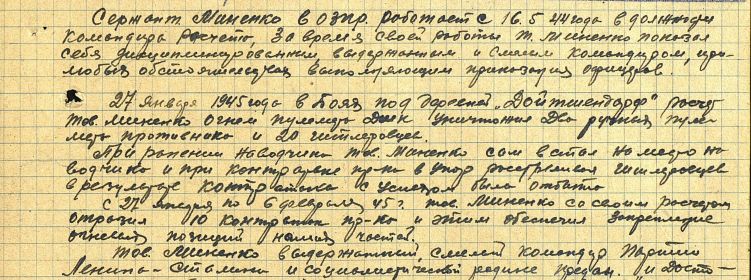 Сержант Миненко в озпр. работает с 16.5 44 года в должности
командира расчета. За время своей работы т. Миненко показал
себя дисциплинированным, выдержанным и смелым командиром, при
любых обстоятельствах, выполняющим приказания офицеров.
27 января 1945 года в боях под деревней "Дойтшендорф" расчет
тов. Миненко огнем пулемета ДШК уничтожил два ручных пуле
мета противника и 20 гитлеровцев.
При ранении наводчика тов. Миненко сам встал на место на
водчика и при контратаке пр-ка в упор расстреливал гитлеровцев
в результате контратака с успехом была отбита
С 27 января по 6 февраля 45 г. тов. Миненко со своим расчетом
отразил 10 контратак пр-ка и этим обеспечил закрепление
огневых позиций наших частей.
Тов. Миненко выдержанный, смелый командир Партии
Ленина-Сталина и социалистической родине предан. и Дост-